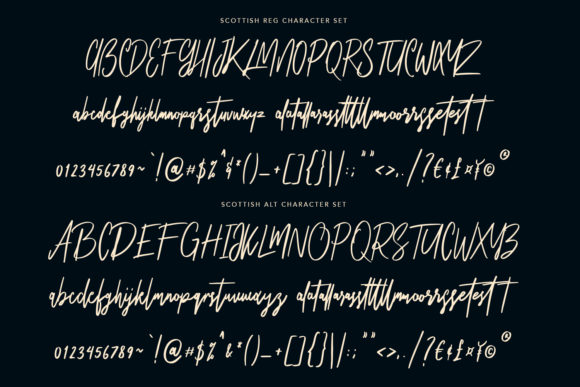 SCOTTISH REG CHARACTER SET
ABCDEFGHIJKLMNOPQRSTUCWXYZ
abcdefghijklmnopqrstuvwxyz alatallarasstttltlmmoorrssetestt
0123456789~`!@#$%^&*()_-+[]{}|\:;""<>,./?€¢£¤¥©®
SCOTTISH ALT CHARACTER SET
ABCDEFGHIJKLMNOPQRSTUCWXYB
abcdefghijklmnopqrstuvwxyz alatallarasstttltlmmoorrssetestt
0123456789~`!@#$%^&*()_-+[]{}|\:;""<>,./?€¢£¤¥©®